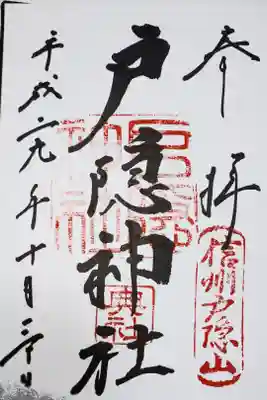 奉拝
信州戸隠山
戸隠神社
平成二九年十月三十日